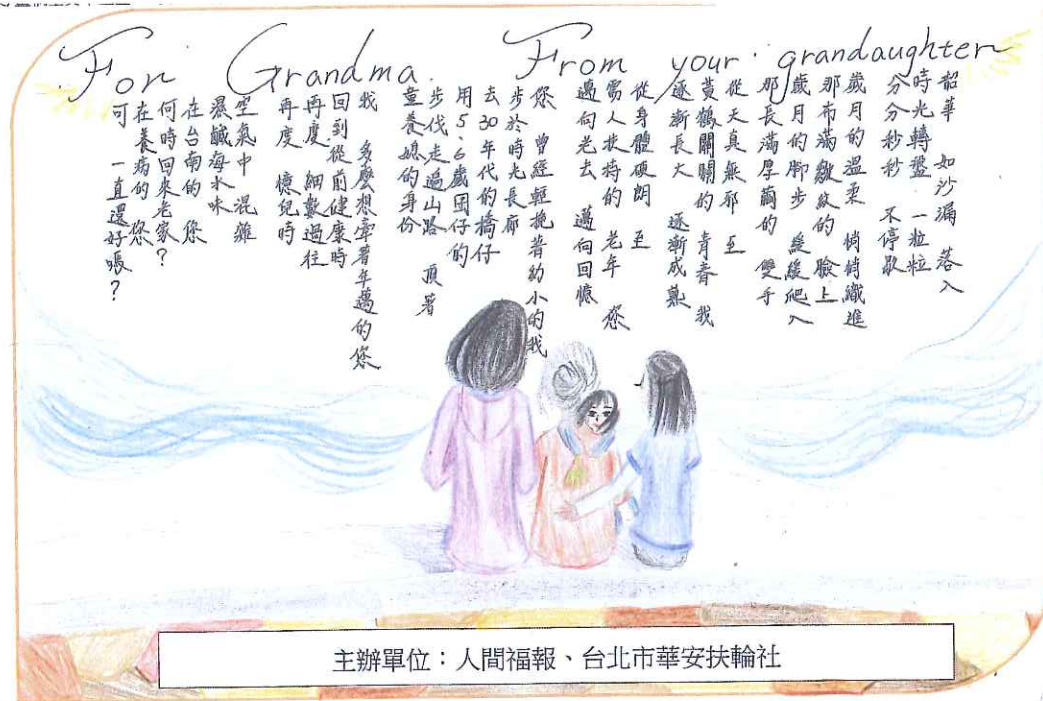 For Grandma. From your grandaughter
韶華 如沙漏 落入
時光轉盤 一粒粒
分分秒秒 不停歇
歲月的溫柔 悄悄織進
那布滿皺紋的 臉上
歲月的腳步 緩緩爬入
那長滿厚繭的 雙手
從天真無邪 至
黃鶴關關的 青春 我
逐漸長大 逐漸成熟
從身體硬朗 至
需人扶持的 老年 您
邁向老去 邁向回憶
您 曾經輕挽著幼小的我
步於時光長廊
去30年代的橋仔
用5、6歲囝仔的
步伐走過山路 頂著
童養媳的身份
我 多麼想牽著年邁的您
回到從前健康時
再度 細數過往
再度 憶兒時
空氣中 混雜
濕鹹海水味
在台南的 您
何時回來老家?
在養病的 您
可 一直還好嗎?
主辦單位：人間福報、台北市華安扶輪社